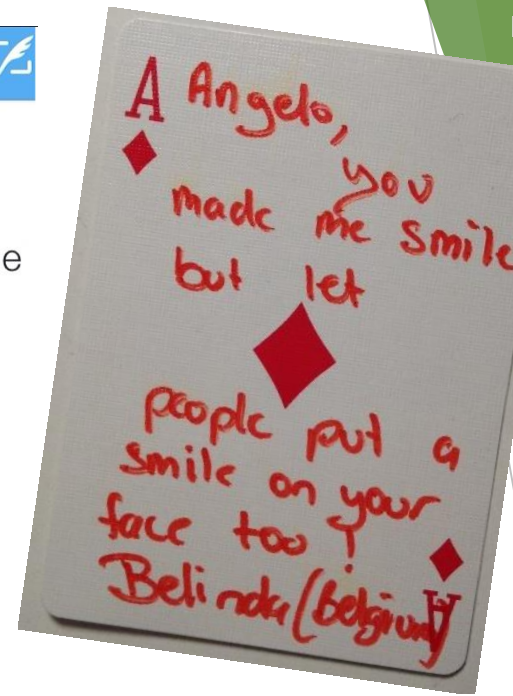 e
A
Angelo,
you
made me smile
but let
people put a
smile on your
face too!
Belinda (Belgium)
A